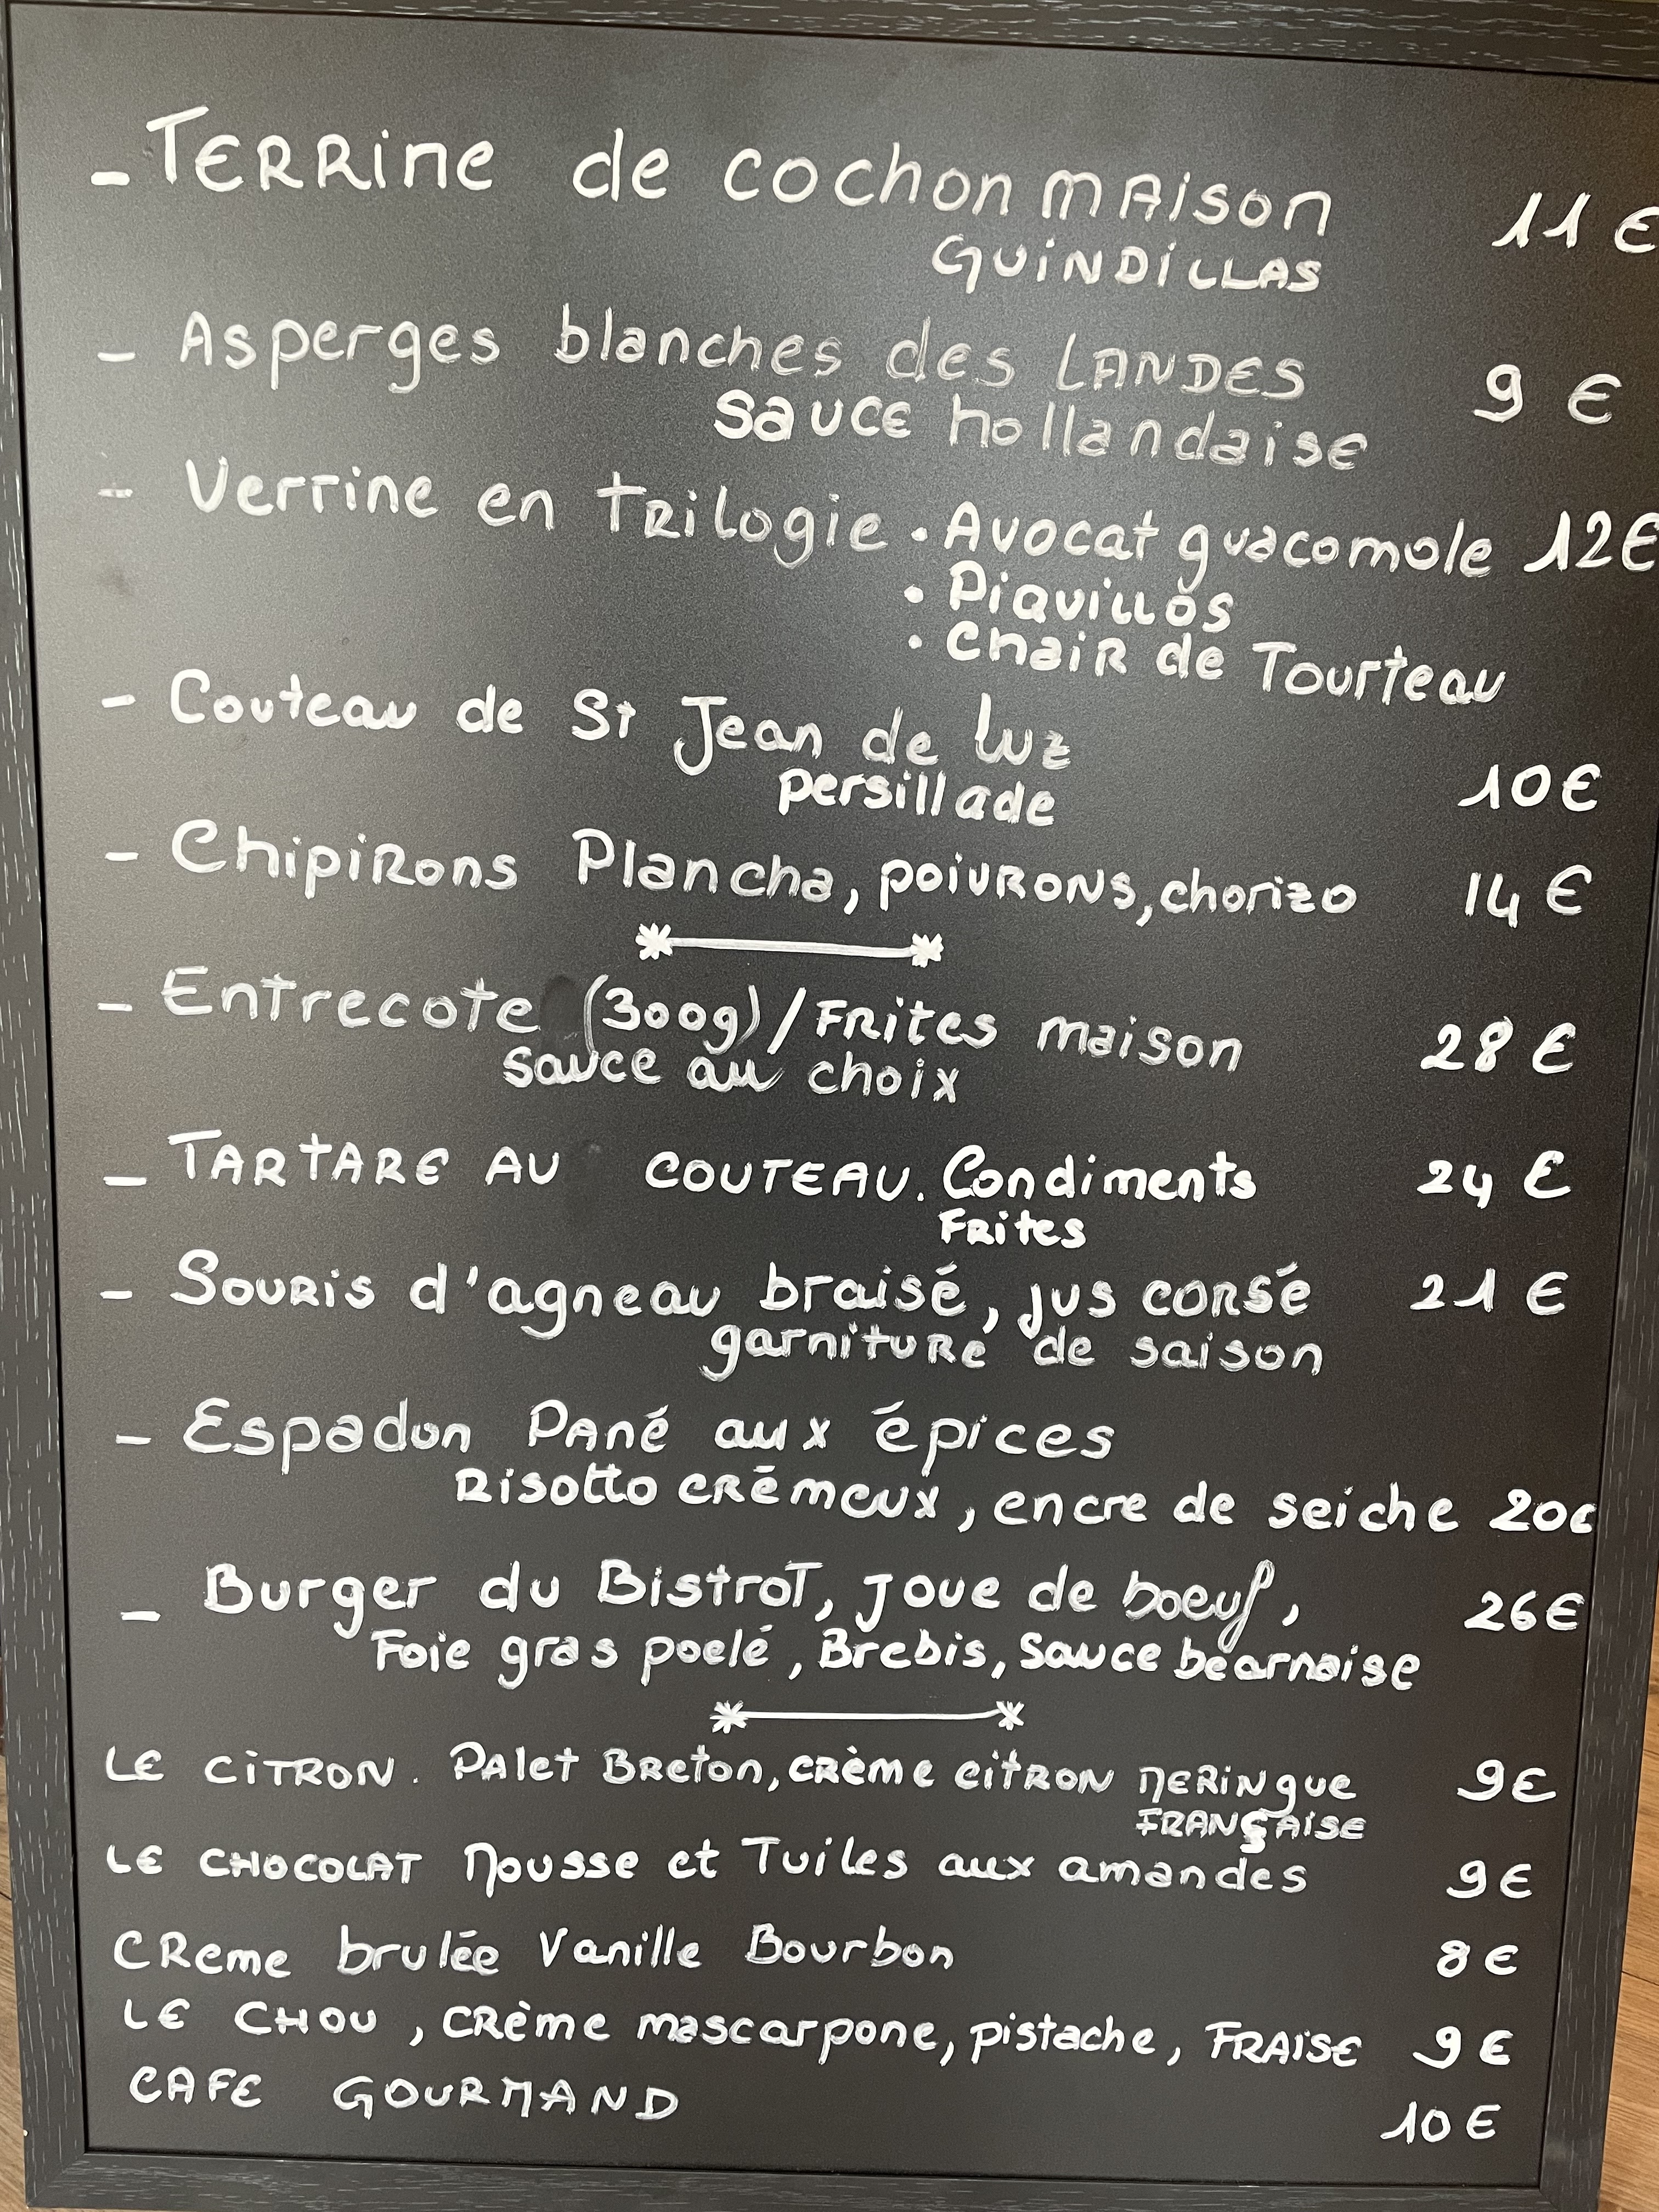 - Terrine de cochon maison 11 €
Guindillas
- Asperges blanches des Landes 9 €
sauce hollandaise
- Verrine en trilogie • Avocat guacomole 12€
• Piquillos
• Chair de Tourteau
- Couteau de St Jean de Luz
persillade 10€
- Chipirons Plancha, poivrons, chorizo 14 €
- Entrecote (300g) / Frites maison 28 €
sauce au choix
- TARTARE AU COUTEAU. Condiments 24 €
Frites
- Souris d'agneau braisé, jus corsé 21 €
garniture de saison
- Espadon Pané aux épices
Risotto crémeux, encre de seiche 20€
- Burger du Bistrot, joue de boeuf, 26€
Foie gras poelé, Brebis, Sauce béarnaise
LE CITRON. Palet Breton, crème citron meringue 9€
FRANÇAISE
LE CHOCOLAT Mousse et Tuiles aux amandes 9€
Creme brulée Vanille Bourbon 8€
LE CHOU, crème mascarpone, pistache, FRAISE 9€
CAFE GOURMAND 10€